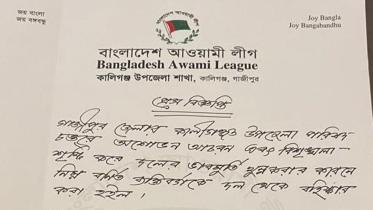 জয় বাংলা
জয় বঙ্গবন্ধু
Joy Bangla
Joy Bangabandhu
বাংলাদেশ আওয়ামী লীগ
Bangladesh Awami League
কালিগঞ্জ উপজেলা শাখা, কালিগঞ্জ, গাজীপুর
প্রেস বিজ্ঞপ্তি
গাজীপুর জেলার কালীগঞ্জ উপজেলা পরিষদ
চত্বরে অশোভন আচরন এবং বিশৃঙ্খলা
সৃষ্টি করে দলের ভাবমূর্তি ক্ষুন্ন করার কারনে
নিম্ন বর্ণিত ব্যক্তিবর্গকে দল থেকে বহিষ্কার
করা হইল।